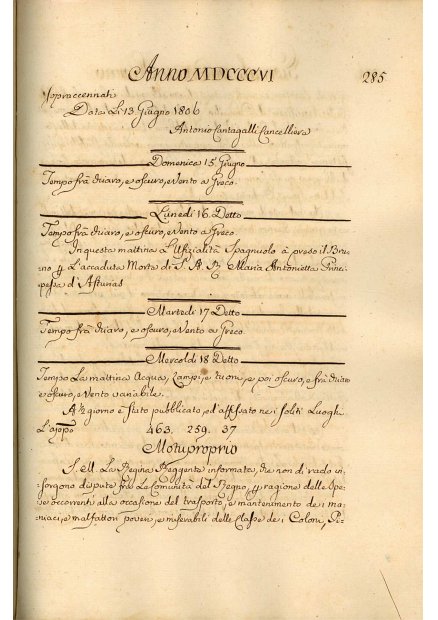 Anno MDCCCVI
285
Sopraccennati
Data Li 13 Giugno 1806
Antonio Cantagalli Cancelliere
Domenica 15 Giugno
Tempo frà chiaro, e oscuro, e Vento a Greco
Lunedi 16 Detto
Tempo frà chiaro, e oscuro, e Vento a Greco.
In questa mattina L'Ufizialità Spagnuola à preso il Bru-
no p. L'accaduta Morte di S. A. R. Maria Antonietta Princi-
pessa d'Asturias
Martedi 17 Detto
Tempo frà chiaro, e oscuro, e Vento a Greco
Mercoldi 18 Detto
Tempo La mattina Acqua, Lampi, e tuoni, e poi oscuro, e frà chiaro
e oscuro, e Vento variabile.
A ½ giorno è stato pubblicato, ed affissato nei soliti Luoghi
L'apppo 463. 259. 37.
Motuproprio
S. M. La Regina Reggente informata, che non di rado in-
sorgono dispute frà Le Comunità del Regno, p. ragione delle Spe-
se occorrenti alla occasione del trasporto, e mantenimento dei ma-
niaci, e malfattori poveri, e miserabili delle Classe dei Coloni, Pi-